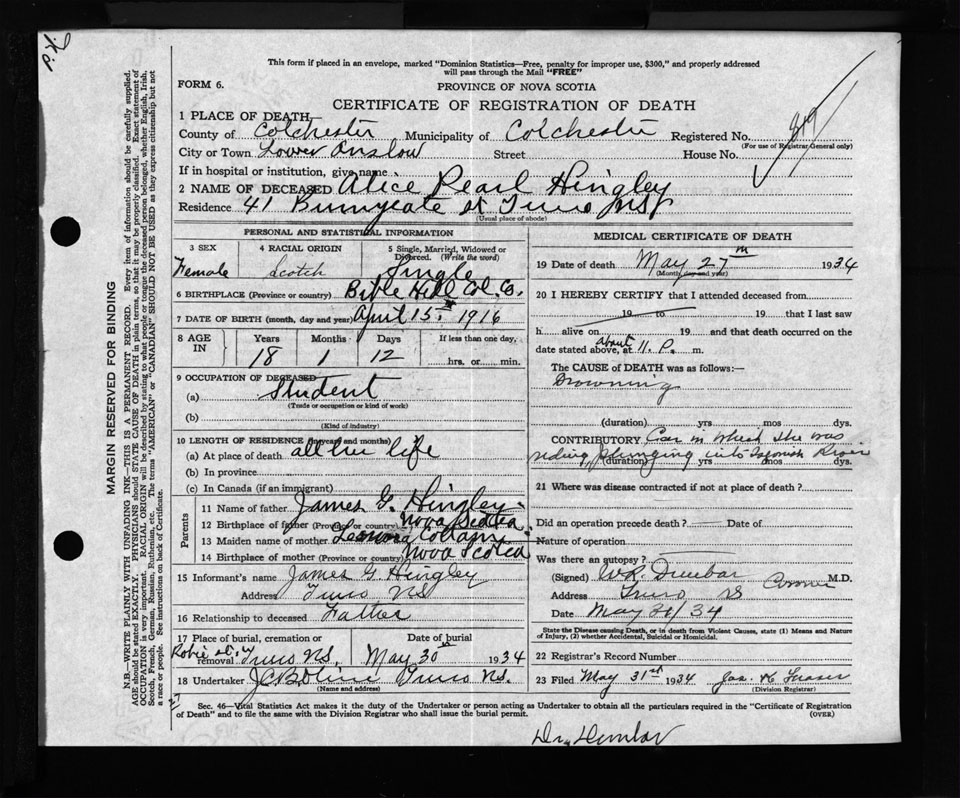 This form if placed in an envelope, marked "Dominion Statistics—Free, penalty for improper use, $300," and properly addressed
will pass through the Mail "FREE"
FORM 6.
PROVINCE OF NOVA SCOTIA
CERTIFICATE OF REGISTRATION OF DEATH
1 PLACE OF DEATH
County of Colchester Municipality of Colchester Registered No. 819
(For use of Registrar General only)
City or Town Lower Onslow Street House No.
If in hospital or institution, give name
2 NAME OF DECEASED Alice Pearl Hingley
Residence 41 Bunnyeate St Truro NS
(Usual place of abode)
PERSONAL AND STATISTICAL INFORMATION
3 SEX 4 RACIAL ORIGIN 5 Single, Married, Widowed or Divorced. (Write the word)
Female Scotch Single
6 BIRTHPLACE (Province or country) Bible Hill Col. Co.
7 DATE OF BIRTH (month, day and year) April 15th 1916
8 AGE IN Years Months Days If less than one day,
18 1 12 hrs. or min.
9 OCCUPATION OF DECEASED
(a) Student
(Trade or occupation or kind of work)
(b)
(Kind of industry)
10 LENGTH OF RESIDENCE (in years and months)
(a) At place of death all her life
(b) In province
(c) In Canada (if an immigrant)
Parents
11 Name of father James G. Hingley
12 Birthplace of father (Province or country) Nova Scotia
13 Maiden name of mother
14 Birthplace of mother (Province or country) Nova Scotia
15 Informant's name James G Hingley
Address Truro NS
16 Relationship to deceased Father
17 Place of burial, cremation or removal Date of burial
Robie St Cy Truro N.S. May 30th 1934
18 Undertaker Truro N.S.
(Name and address)
MEDICAL CERTIFICATE OF DEATH
19 Date of death May 27th 1934
(Month, day and year)
20 I HEREBY CERTIFY that I attended deceased from
19 to 19 that I last saw
h alive on 19 and that death occurred on the
date stated above, at About 11. P. m.
The CAUSE OF DEATH was as follows:—
Drowning
(duration) yrs mos dys.
CONTRIBUTORY Car in which she was
riding, plunging into River
(duration) yrs mos dys.
21 Where was disease contracted if not at place of death?
Did an operation precede death? Date of
Nature of operation
Was there an autopsy?
(Signed) W.R. Dunbar Coroner M.D.
Address Truro NS
Date May 31/34
State the Disease causing Death, or in death from Violent Causes, state (1) Means and
Nature of Injury, (2) whether Accidental, Suicidal or Homicidal.
22 Registrar's Record Number
23 Filed May 31st 1934 Jas. K Fraser
(Division Registrar)
Sec. 46—Vital Statistics Act makes it the duty of the Undertaker or person acting as Undertaker to obtain all the particulars required in the "Certificate of Registration
of Death" and to file the same with the Division Registrar who shall issue the burial permit. (OVER)
Dr. Dunbar
MARGIN RESERVED FOR BINDING
N.B.—WRITE PLAINLY WITH UNFADING INK—THIS IS A PERMANENT RECORD. Every item of information should be carefully supplied.
AGE should be stated EXACTLY. PHYSICIANS should STATE CAUSE OF DEATH in plain terms, so that it may be properly classified. Exact statement of
OCCUPATION is very important. RACIAL ORIGIN will be described by stating to what people or tongue the deceased person belonged, whether English, Irish,
Scotch, French, German, Russian, Ruthenian, etc. The terms "AMERICAN" or "CANADIAN" SHOULD NOT BE USED as they express citizenship but not
a race or people. See instructions on back of Certificate.